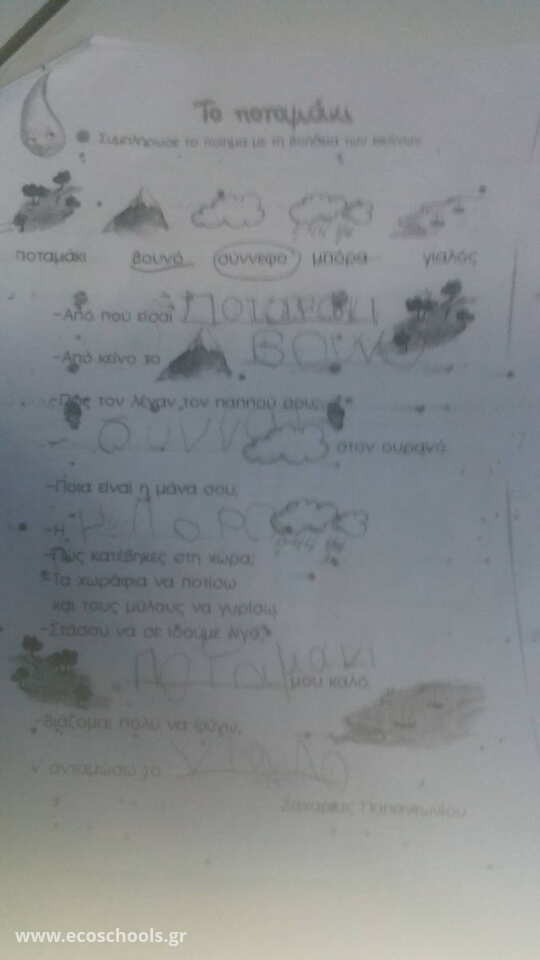 Το ποταμάκι
Συμπλήρωσε το ποίημα με τη βοήθεια των εικόνων
ποταμάκι βουνό σύννεφο μπόρα γιαλός
-Από πού είσαι ποταμάκι
-Από κείνο το βουνό
-Πώς τον λέγαν τον παππού σου;
στον ουρανό
-Ποια είναι η μάνα σου;
-Η μπόρα
-Πώς κατέβηκες στη χώρα;
Τα χωράφια να ποτίσω
και τους μύλους να γυρίσω
-Στάσου να σε ιδούμε λιγάκι
ποταμάκι μου καλό
-Βιάζομαι πολύ να φύγω,
ν' ανταμώσω το γιαλό
Ζαχαρίας Παπαντωνίου
www.ecoschools.gr